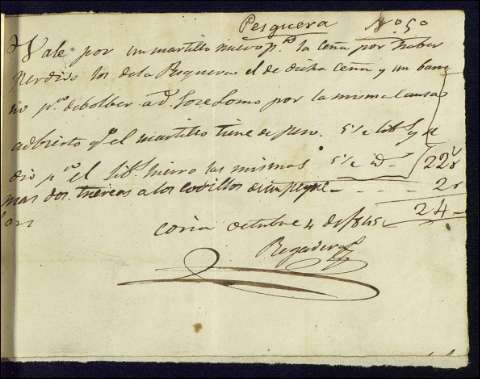 Pesquera Nº 5º
Vale por un martillo nuevo pª la ceña por haber
perdido los de la Pesquera el de dicha ceña y un barre
no pª debolber a dn Jose Lomo por la misma causa
adbierto qe el martillo tiene de peso 5 ½ lib y
dio pª el hierro las mismas 5 ½ id 22 r
mas dos tuercas a los codillos 2 r
24
Coria octubre 4 de 1845
Regadera